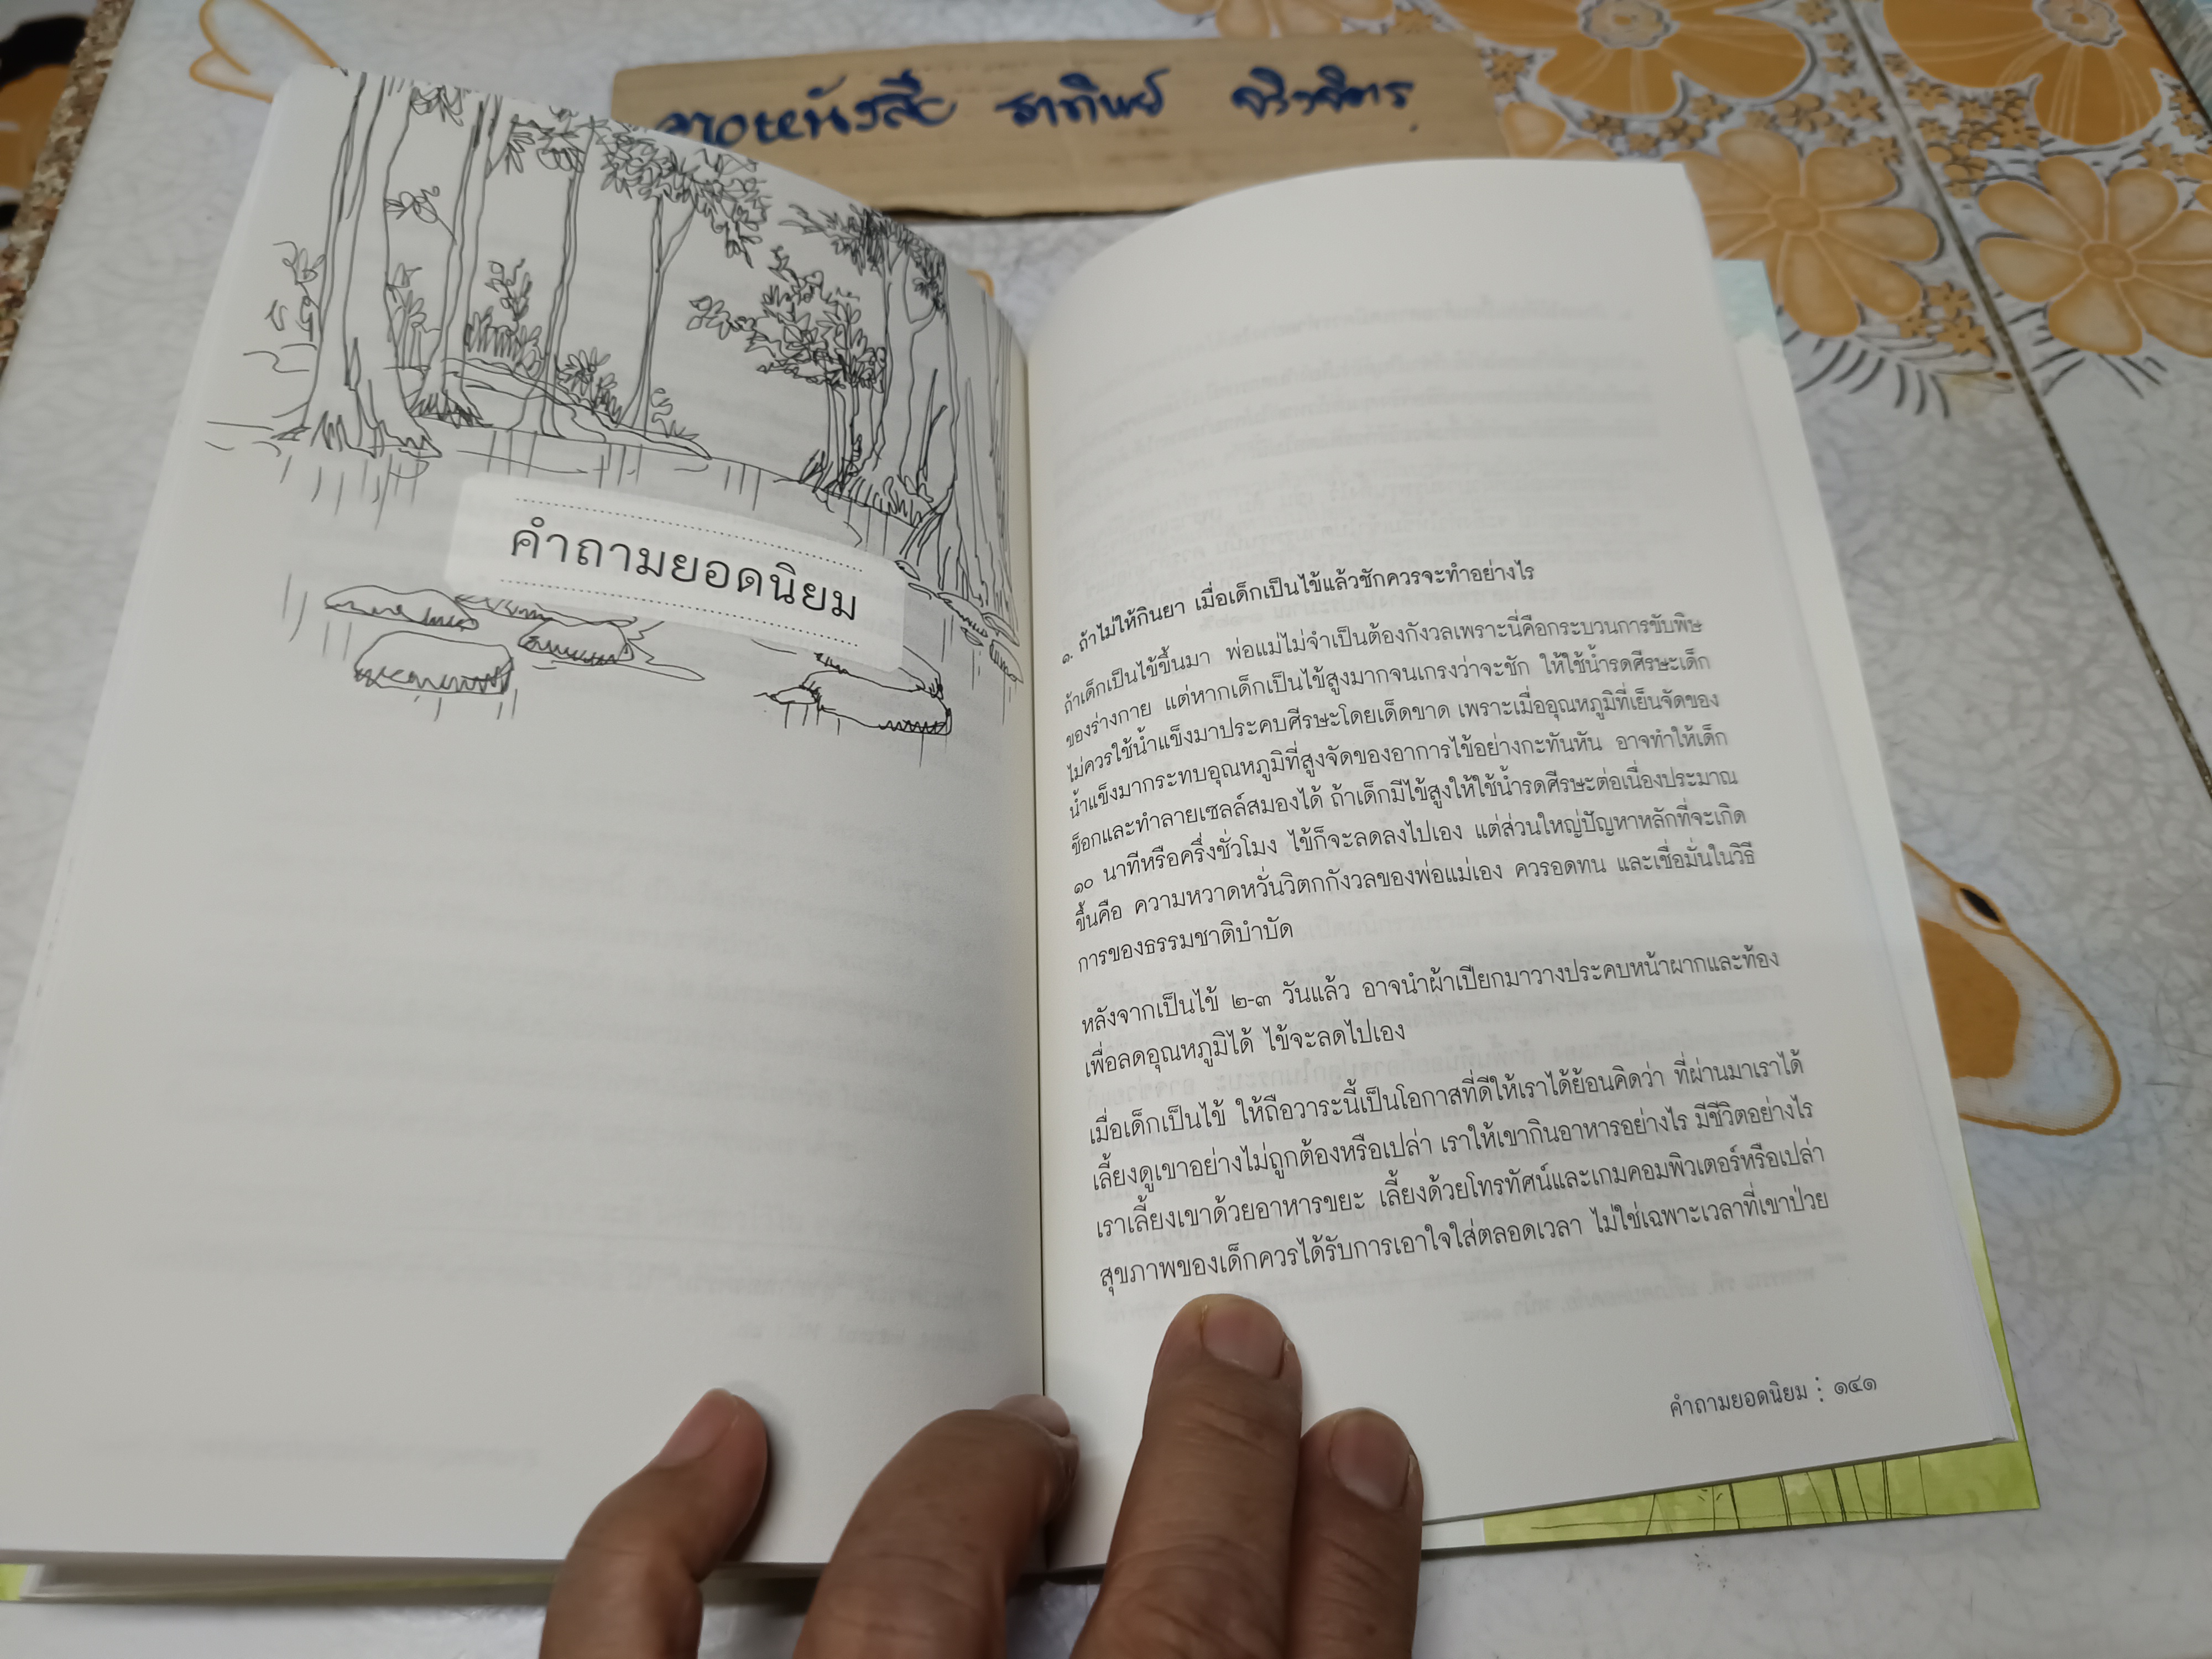 ขายหนังสือ ธาทิพย์ จริงจิตร
คำถามยอดนิยม
๑. ถ้าไม่ให้กินยา เมื่อเด็กเป็นไข้แล้วชักควรจะทำอย่างไร
ถ้าเด็กเป็นไข้ขึ้นมา พ่อแม่ไม่จำเป็นต้องกังวลเพราะนี่คือกระบวนการขับพิษ
ของร่างกาย แต่หากเด็กเป็นไข้สูงมากจนเกรงว่าจะชัก ให้ใช้น้ำรดศีรษะเด็ก
ไม่ควรใช้น้ำแข็งมาประคบศีรษะโดยเด็ดขาด เพราะเมื่ออุณหภูมิที่เย็นจัดของ
น้ำแข็งมากระทบอุณหภูมิที่สูงจัดของอาการไข้อย่างกะทันหัน อาจทำให้เด็ก
ช็อกและทำลายเซลล์สมองได้ ถ้าเด็กมีไข้สูงให้ใช้น้ำรดศีรษะต่อเนื่องประมาณ
๑๐ นาทีหรือครึ่งชั่วโมง ไข้ก็จะลดลงไปเอง แต่ส่วนใหญ่ปัญหาหลักที่จะเกิด
ขึ้นคือ ความหวาดหวั่นวิตกกังวลของพ่อแม่เอง ควรอดทน และเชื่อมั่นในวิธี
การของธรรมชาติบำบัด
หลังจากเป็นไข้ ๒-๓ วันแล้ว อาจนำผ้าเปียกมาวางประคบหน้าผากและท้อง
เพื่อลดอุณหภูมิได้ ไข้จะลดไปเอง
เมื่อเด็กเป็นไข้ ให้ถือวาระนี้เป็นโอกาสที่ดีให้เราได้ย้อนคิดว่า ที่ผ่านมาเราได้
เลี้ยงดูเขาอย่างไม่ถูกต้องหรือเปล่า เราให้เขากินอาหารอย่างไร มีชีวิตอย่างไร
เราเลี้ยงเขาด้วยอาหารขยะ เลี้ยงด้วยโทรทัศน์และเกมคอมพิวเตอร์หรือเปล่า
สุขภาพของเด็กควรได้รับการเอาใจใส่ตลอดเวลา ไม่ใช่เฉพาะเวลาที่เขาป่วย
คำถามยอดนิยม : ๑๔๑